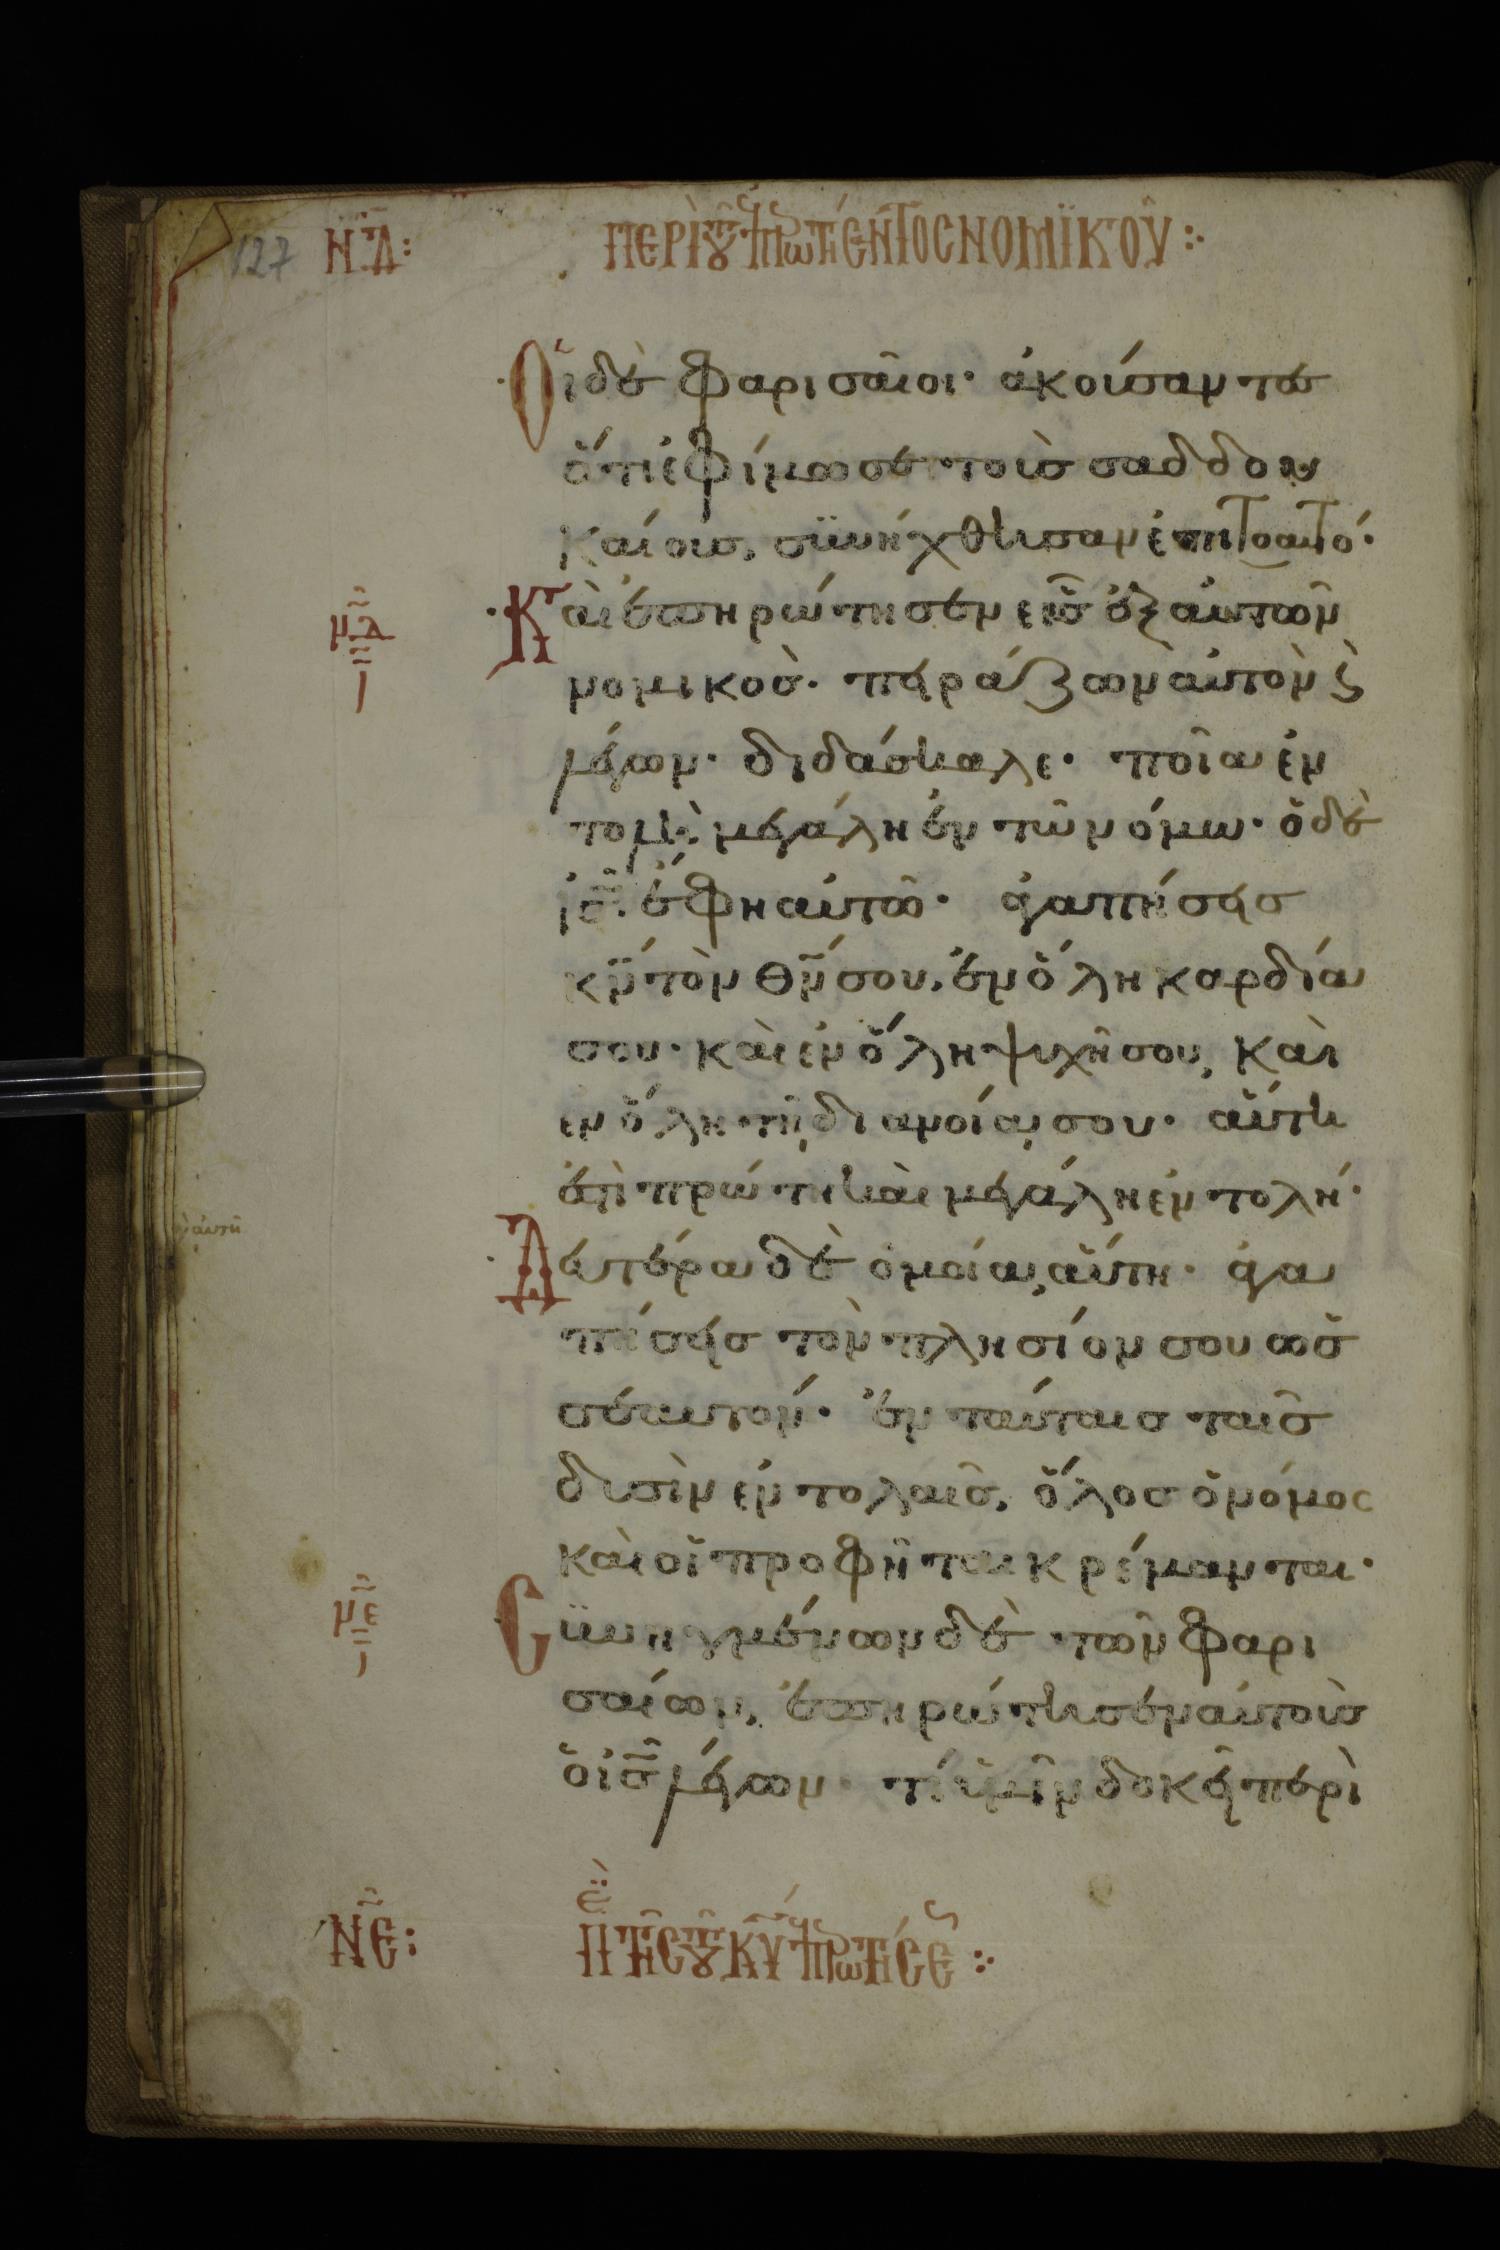 127 ΝΔ: ΠΕΡῚ ΤΟΥ̂ ἘΠΕΡΩΤΉCΑΝΤΟC ΝΟΜΪΚΟΥ̂:
Οἱ δὲ φαρισαῖοι· ἀκούσαντες
ὅτι ἐφίμωσε τοὺς σαδδου
καίους, σϋνήχθησαν ἐπιτοαυτό·
Καὶ ἐπηρώτησεν εἷς ἐξ αὐτῶν
νομικὸς· πειράζων αὐτὸν ϗ̀
λέγων· διδάσκαλε· ποῖα ἐν
τολὴ μεγάλη ἐν τῶ νόμω· ὁ δὲ
ἰς̅ ἔφη αὐτῶ· ἀγαπήσεις
κν̅ τὸν θν̅ σου, ἐν ὅλη καρδία
σου· καὶ ἐν ὅλη ψυχῆ σου, καὶ
ἐν ὅλη τῆ διανοία σου· αὕτη
ἐστὶ πρώτη καὶ μεγάλη ἐντολή·
Δευτέρα δὲ ὁμοία αὕτη· ἀγα
πήσεις τὸν πλησίον σου ὡς
σεαυτόν· ἐν ταύταις ταῖς
δυσὶν ἐντολαῖς, ὅλος ὁ νόμος
καὶ οἱ προφῆται κρέμανται·
Cϋνηγμένων δὲ τῶν φαρι
σαίων, ἐπηρώτησεν αὐτοὺς
ὁ ις̅ λέγων· τί ὑμῖν δοκεῖ περὶ
μδ
ι
αὐτῆ
με
ι
ΝΕ: ΠΕΡῚ ΤΗ͂C ΤΟΥ̂ ΚΥ̅ ἘΠΕΡΩΤΉCΕΩC: